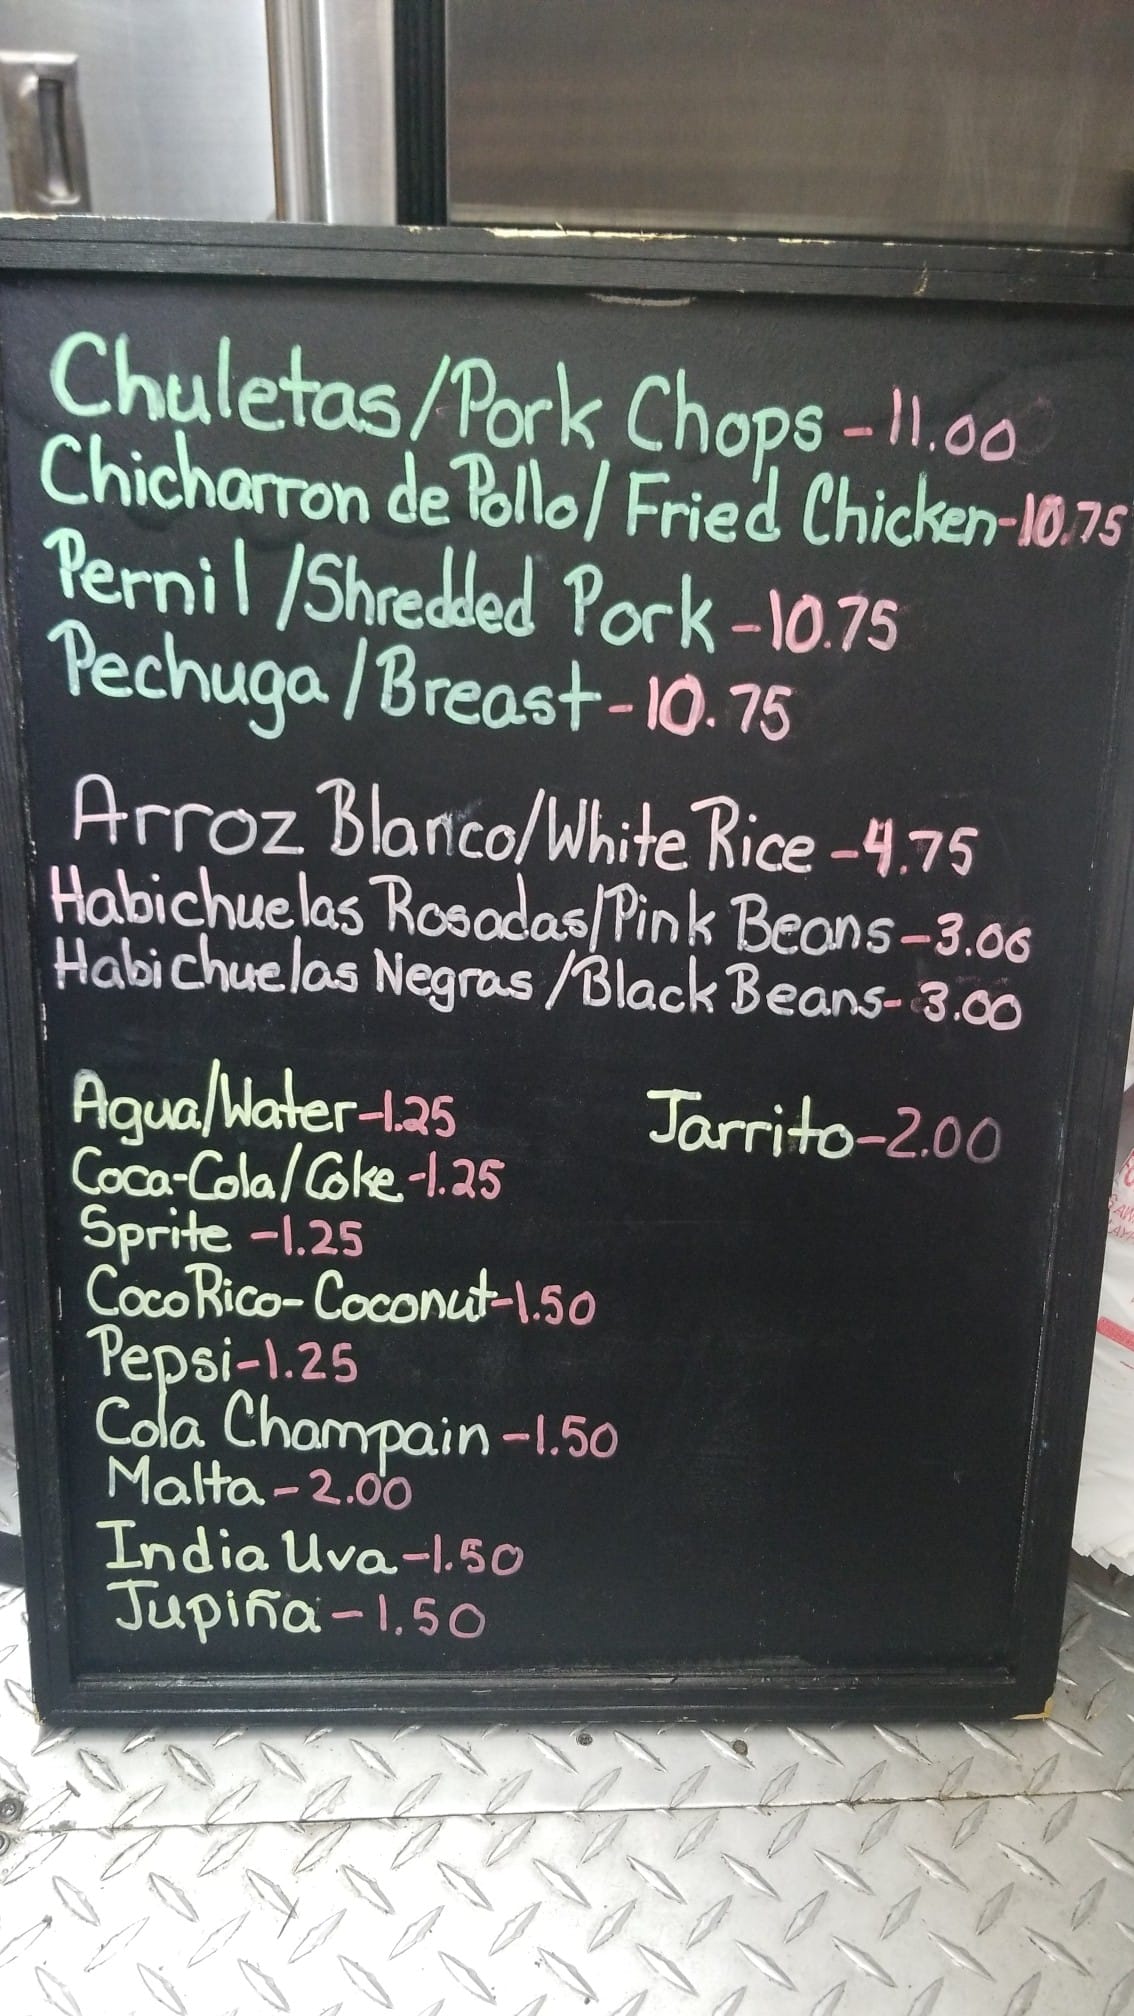 Chuletas/Pork Chops - 11.00
Chicharron de Pollo/ Fried Chicken-10.75
Pernil /Shredded Pork - 10.75
Pechuga /Breast - 10.75
Arroz Blanco/White Rice - 4.75
Habichuelas Rosadas/Pink Beans - 3.00
Habichuelas Negras /Black Beans- 3.00
Agua/Water-1.25
Coca-Cola/Coke-1.25
Sprite -1.25
Coco Rico- Coconut-1.50
Pepsi-1.25
Cola Champain -1.50
Malta - 2.00
India Uva-1.50
Jupiña - 1.50
Jarrito-2.00